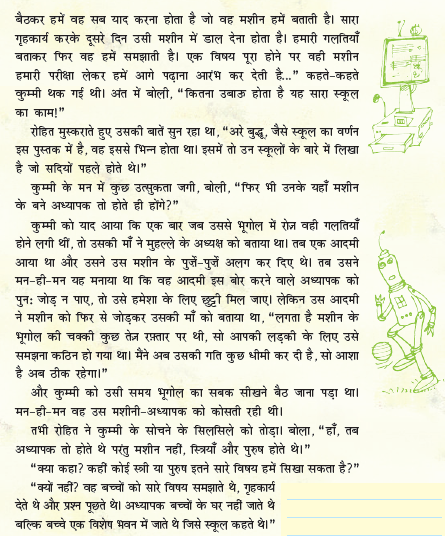 बैठकर हमें वह सब याद करना होता है जो वह मशीन हमें बताती है। सारा
गृहकार्य करके दूसरे दिन उसी मशीन में डाल देना होता है। हमारी गलतियाँ
बताकर फिर वह हमें समझाती है। एक विषय पूरा होने पर वही मशीन
हमारी परीक्षा लेकर हमें आगे पढ़ाना आरंभ कर देती है...” कहते-कहते
कुम्मी थक गई थी। अंत में बोली, “कितना उबाऊ होता है यह सारा स्कूल
का काम!”
रोहित मुस्कराते हुए उसकी बातें सुन रहा था, “अरे बुद्धू, जैसे स्कूल का वर्णन
इस पुस्तक में है, वह इससे भिन्न होता था। इसमें तो उन स्कूलों के बारे में लिखा
है जो सदियों पहले होते थे।”
कुम्मी के मन में कुछ उत्सुकता जगी, बोली, “फिर भी उनके यहाँ मशीन
के बने अध्यापक तो होते ही होंगे?”
कुम्मी को याद आया कि एक बार जब उससे भूगोल में रोज़ वही गलतियाँ
होने लगी थीं, तो उसकी माँ ने मुहल्ले के अध्यक्ष को बताया था। तब एक आदमी
आया था और उसने उस मशीन के पुर्जे-पुर्जे अलग कर दिए थे। तब उसने
मन-ही-मन यह मनाया था कि वह आदमी इस बोर करने वाले अध्यापक को
पुन: जोड़ न पाए, तो उसे हमेशा के लिए छुट्टी मिल जाए। लेकिन उस आदमी
ने मशीन को फिर से जोड़कर उसकी माँ को बताया था, “लगता है मशीन के
भूगोल की चक्की कुछ तेज़ रफ़्तार पर थी, सो आपकी लड़की के लिए उसे
समझना कठिन हो गया था। मैंने अब उसकी गति कुछ धीमी कर दी है, सो आशा
है अब ठीक रहेगा।”
और कुम्मी को उसी समय भूगोल का सबक सीखने बैठ जाना पड़ा था।
मन-ही-मन वह उस मशीनी-अध्यापक को कोसती रही थी।
तभी रोहित ने कुम्मी के सोचने के सिलसिले को तोड़ा। बोला, “हाँ, तब
अध्यापक तो होते थे परंतु मशीन नहीं, स्त्रियाँ और पुरुष होते थे।”
“क्या कहा? कहीं कोई स्त्री या पुरुष इतने सारे विषय हमें सिखा सकता है?”
“क्यों नहीं? वह बच्चों को सारे विषय समझाते थे, गृहकार्य
देते थे और प्रश्न पूछते थे। अध्यापक बच्चों के घर नहीं जाते थे
बल्कि बच्चे एक विशेष भवन में जाते थे जिसे स्कूल कहते थे।”